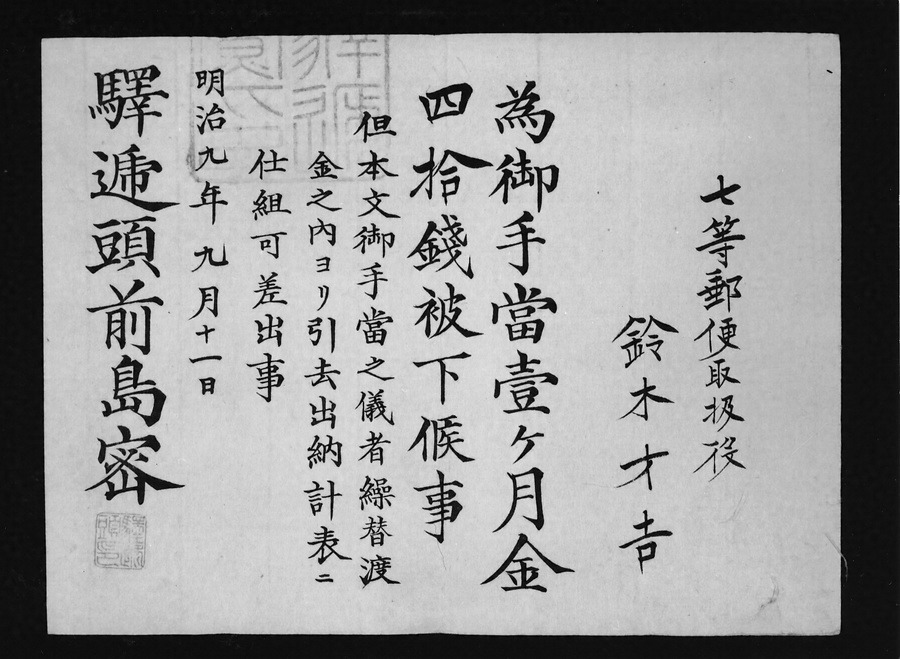 七等郵便取扱役
鈴木才吉
為御手當壹ヶ月金
四拾錢被下候事
但本文御手當之儀者繰替渡
金之內ヨリ引去出納計表ニ
仕組可差出事
明治九年九月十一日
驛遞頭前島密